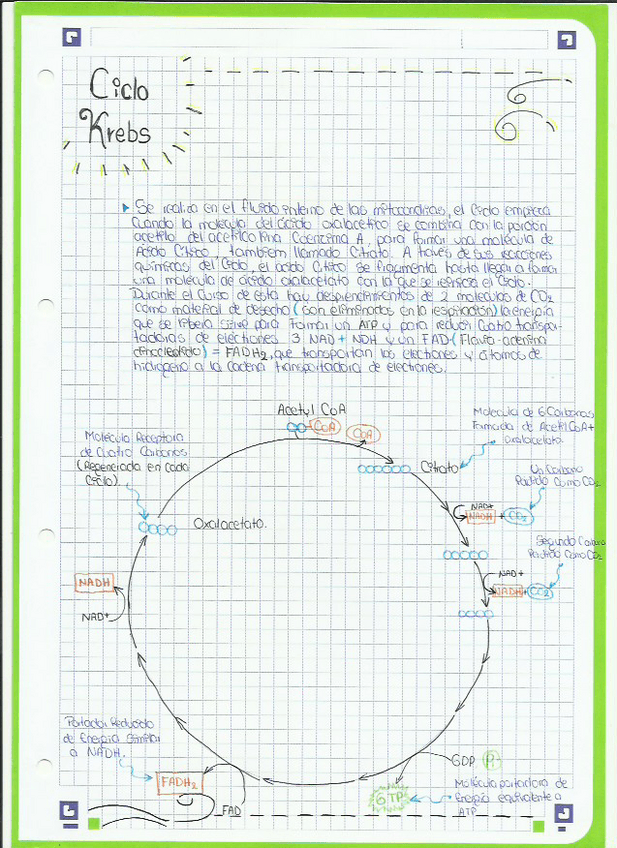 Ciclo
Krebs
Se realiza en el fluido interno de las mitocondrias, el Ciclo empieza
Cuando la molecula del ácido oxalacetico se combina con la porción
acetilo del acetilco fina Coenzima A, para formar una molécula de
Ácido Citrico, tambien llamado Citrato. A través de sus reacciones
químicas del Ciclo, el acido Citrico se fragmenta hasta llegar a formar
una molécula de ácido oxalacetato con la que se reinicia el Ciclo.
Durante el Curso de esta hay desprendimientos de 2 moleculas de CO2
Como material de desecho (son eliminados en la respiración) la energia
que se libera sirve para formar un ATP y para reducir Cuatro transpor-
tadoras de electrones 3 NAD + NDH y un FAD (Flavin-adenina
dinocleotido) = FADH2, que transportan los electrones y átomos de
hidrogeno a la cadena transportadora de electrones.
Acetyl CoA
CoA
CoA
Molecula de 6 Carbonos
Formada de Acetyl CoA+
Oxalacetato
Molécula Receptora
de Cuatro Carbonos
(Regenerada en Cada
Ciclo)
Citrato
Un Carbono
Partido Como CO2
NAD+
NADH + CO2
Oxalacetato.
Segundo Carbono
Partido Como CO2
NAD+
NADH + CO2
NADH
NAD+
Portador Reducido
de Energia Similar
a NADH.
FADH2
FAD
GDP Pi
GTP
Molécula portadora de
Energia equivalente a
ATP